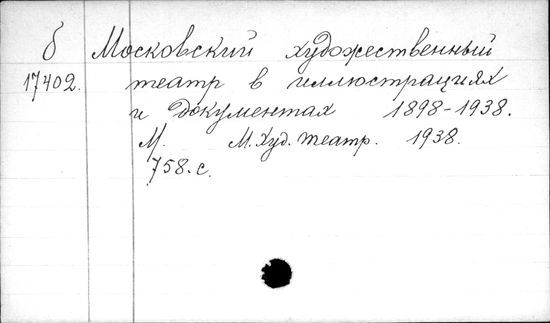 б Московский художественный
17402. театр в иллюстрациях
и документах 1898-1938.
М. М. Худ. театр. 1938.
758. с.